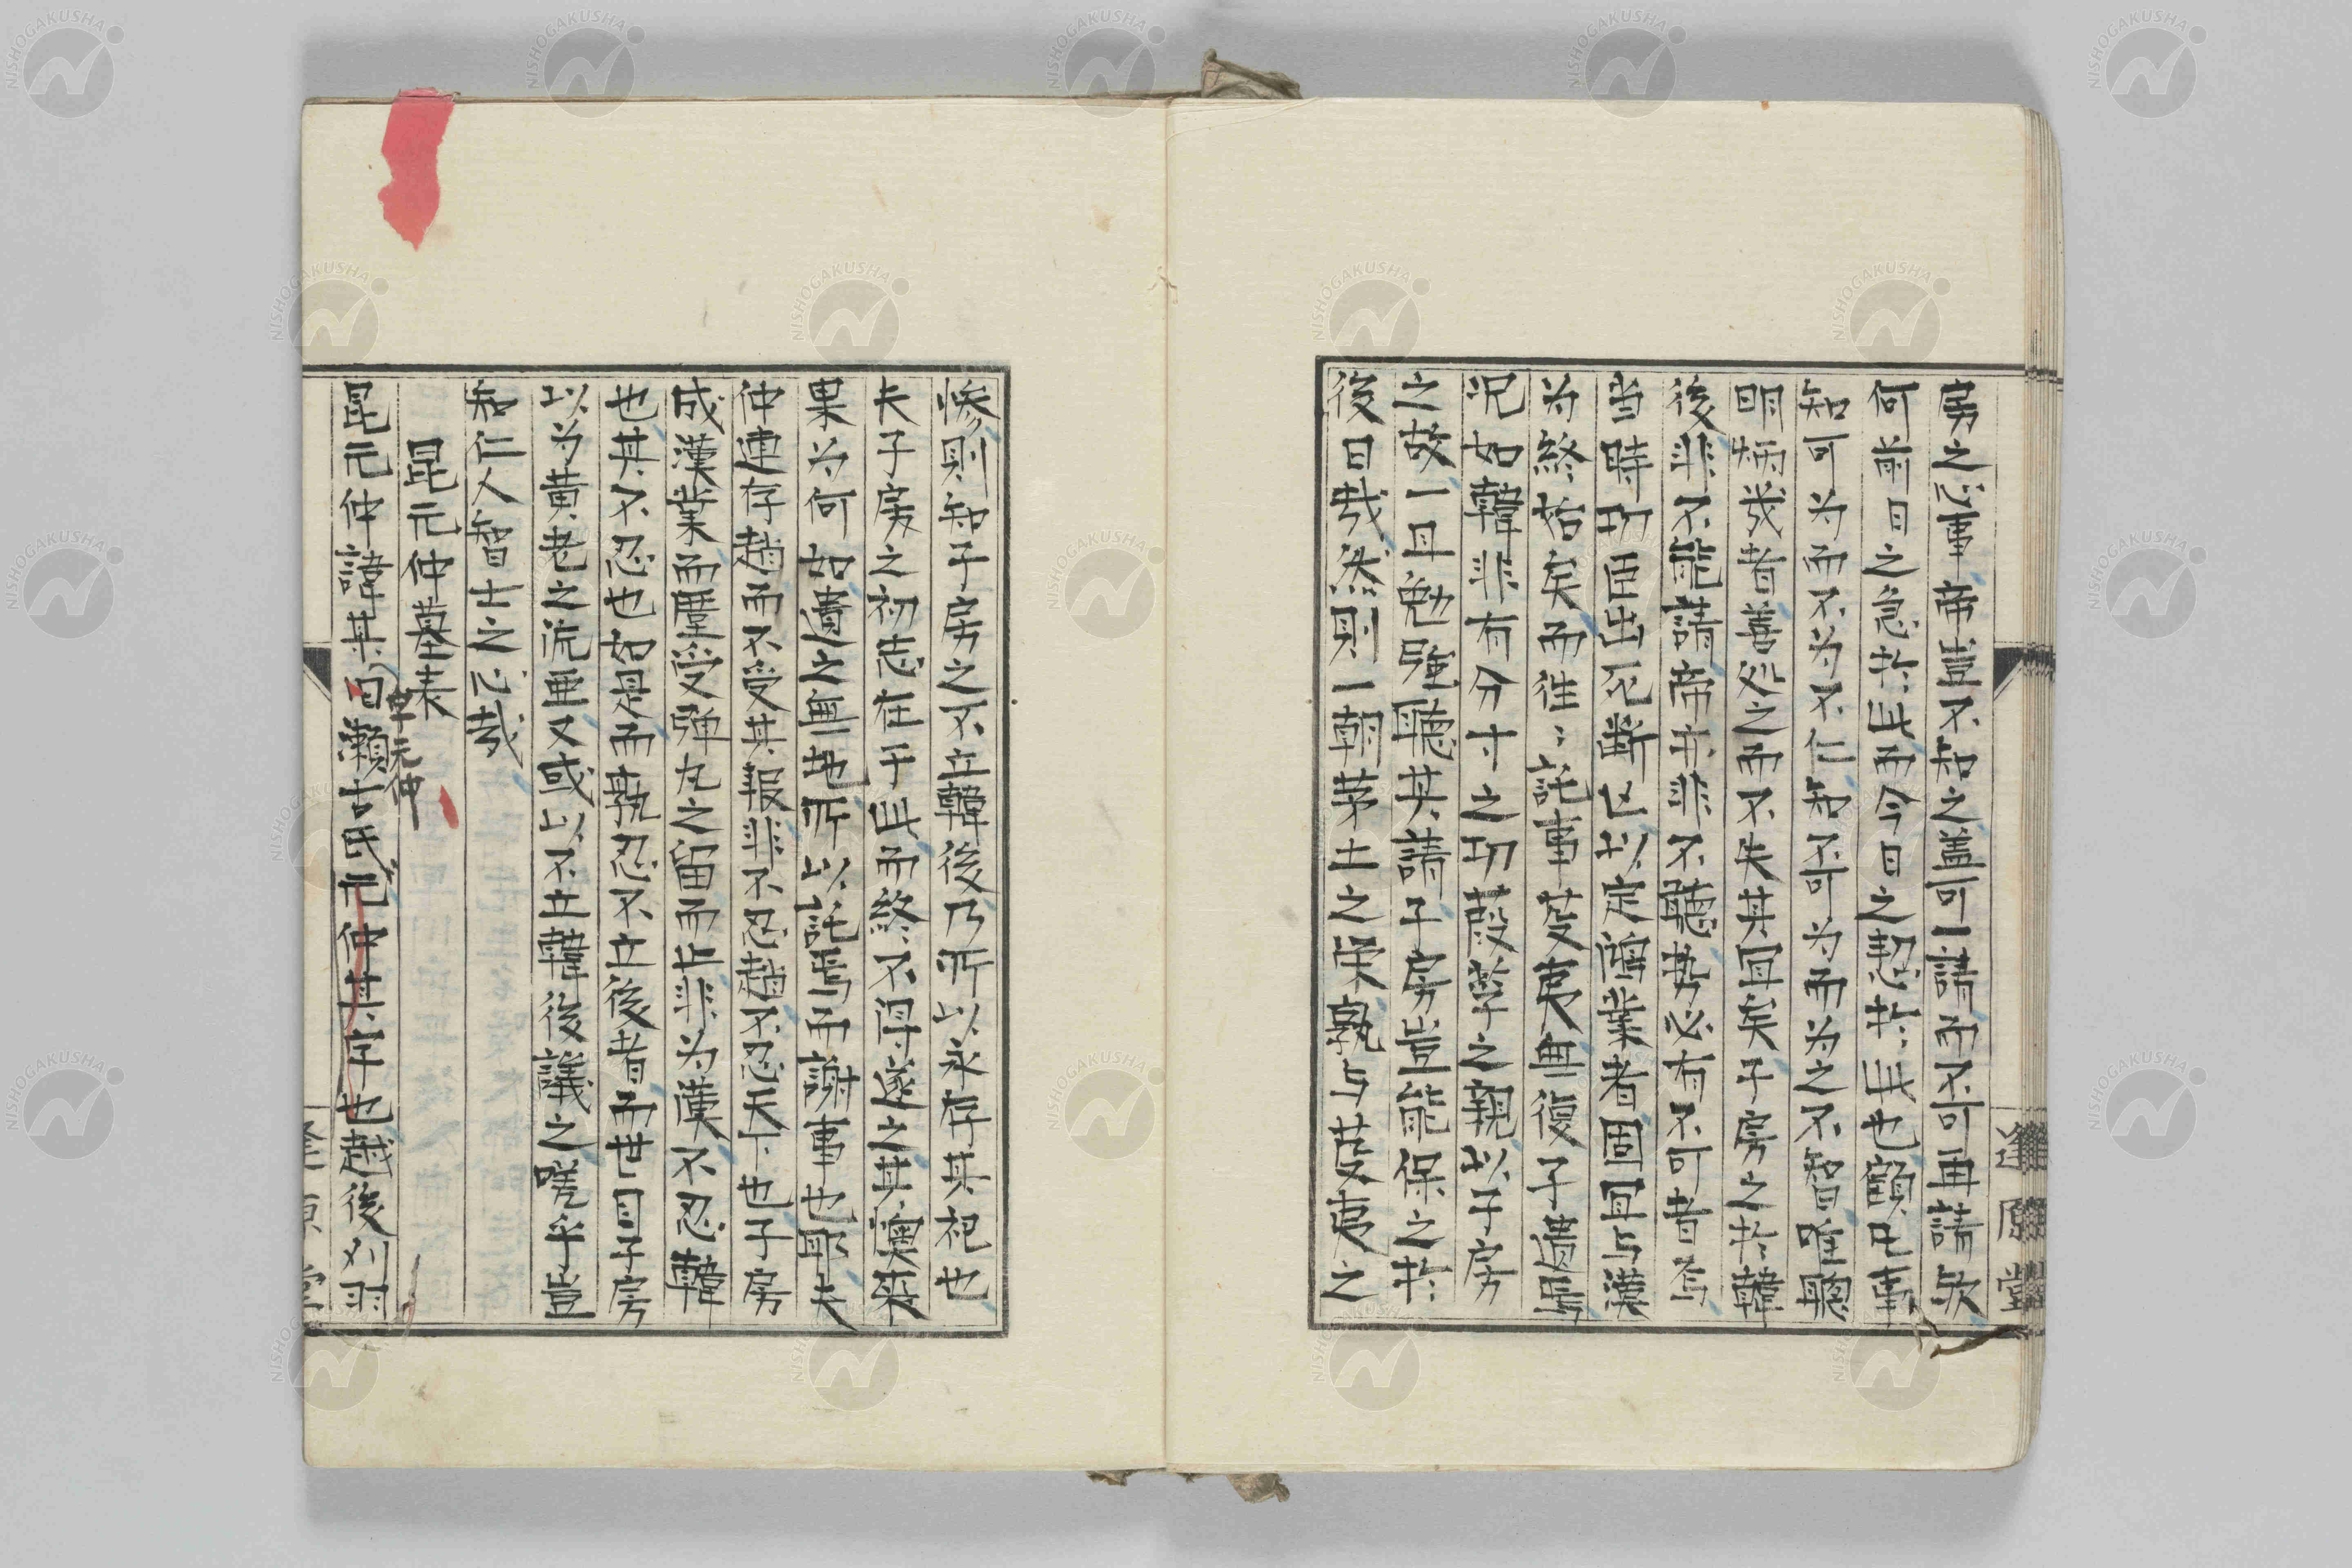 房之心事帝豈不知之蓋可一請而不可再請矣
何前日之急於此而今日之恝於此也顧凡事
知可為而不為不仁知不可為而為之不智唯聰
明炳幾者善処之而不失其宜矣子房之於韓
後非不能請帝亦非不聽勢必有不可者焉
当時功臣出死断亡以定開業者固宜与漢
為終始矣而往〻託事葅夷無復孑遺焉
况如韓非有分寸之功葭莩之親以子房
之故一旦勉強聽其請子房豈能保之於
後日哉然則一朝茅土之栄孰与葅夷之
惨則知子房之不立韓後乃所以永存其祀也
夫子房之初志在于此而終不得遂之其懊
果為何如遺之無地所以託焉而謝事也耶夫
仲連存趙而不受其報非不忍趙不忍天下也子房
成漢業而塵受弾丸之留而止非為漢不忍韓
也其不忍也如是而孰忍不立後者而世目子房
以為黄老之流亜又或以不立韓後議之嗟乎豈
知仁人智士之心哉
昆元仲墓表
昆元仲諱某自瀬古氏元仲其字也越後刈羽
字元仲
逢原堂
逢原堂
NISHOGAKUSHA